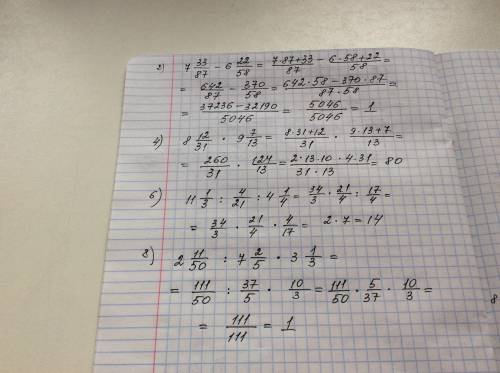 2) 7 33/87 - 6 22/58 = (7·87+33)/87 - (6·58+22)/58 =
= 642/87 - 370/58 = (642·58-370·87)/(87·58) =
= (37236-32190)/5046 = 5046/5046 = 1
4) 8 12/31 · 9 7/13 = (8·31+12)/31 · (9·13+7)/13 =
= 260/31 · 124/13 = (2·13·10·4·31)/(31·13) = 80
6) 11 1/3 : 4/21 : 4 1/4 = 34/3 · 21/4 : 17/4 =
= 34/3 · 21/4 · 4/17 = 2·7 = 14
8) 2 11/50 : 7 2/5 · 3 1/3 =
= 111/50 : 37/5 · 10/3 = 111/50 · 5/37 · 10/3 =
= 111/111 = 1
8